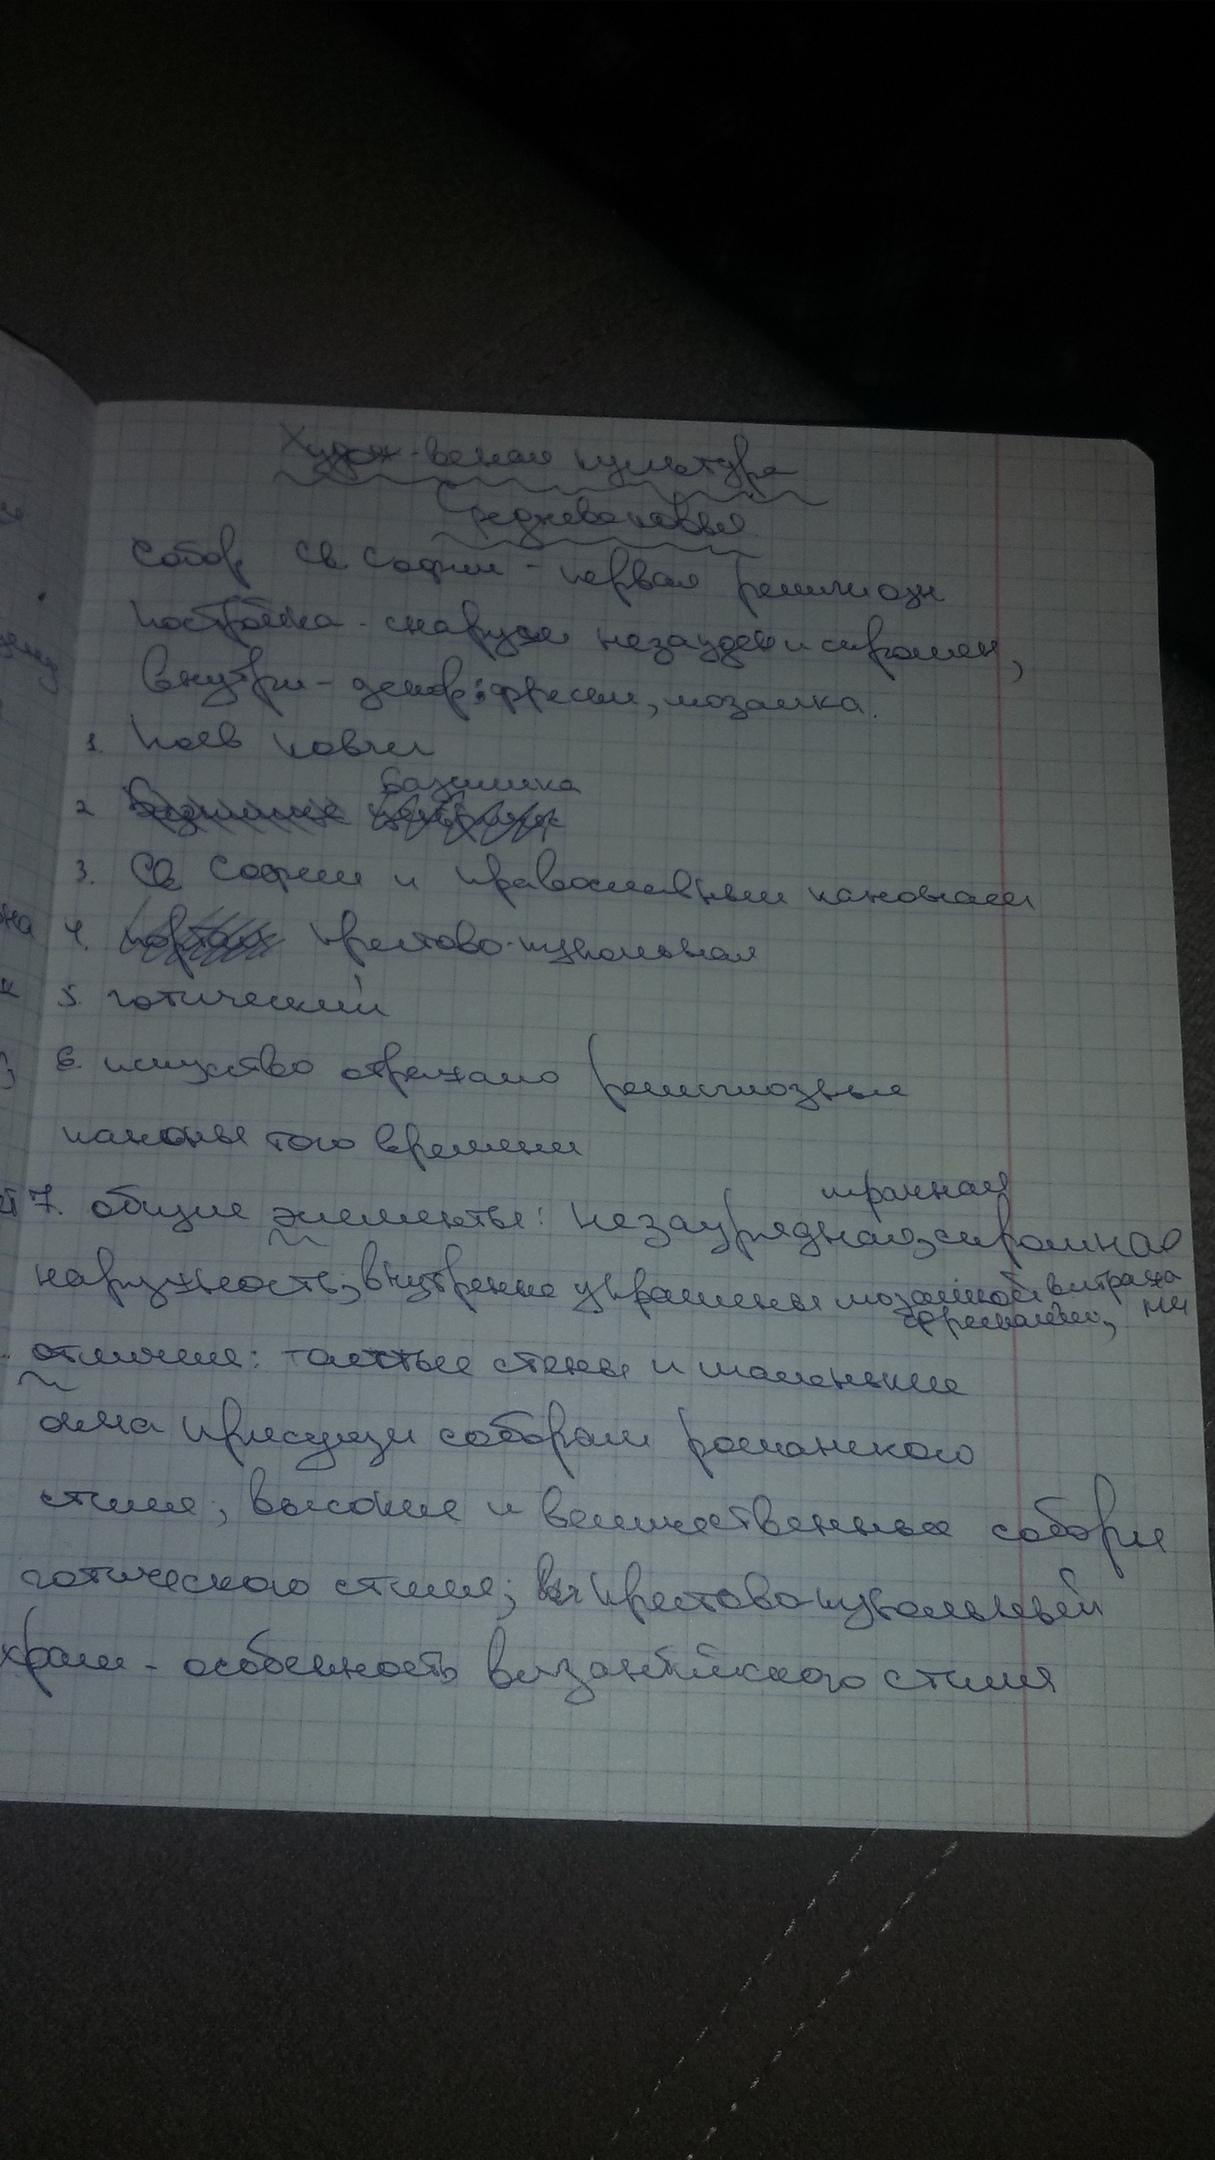 Худож-венная культура
Средневековья
Собор Св. Софии - первая религиозн
постройка - снаружи незауряд и скромен,
внутри - декор: фрески, мозаика.
1. Ноев ковчег
базилика
2
3. Св Софии и православным канонам
4. крестово-купольная
5. готический
6. искуство отрежало религиозные
каноны того времени
мрачная
7. общие элементы: незаурядная, скромная
наружность; внутренне украшены мозайкой витражами
фресками,
отличие: толстые стены и маленькие
окна присущи соборам романского
стиля; высокие и величественные соборы
готического стиля; крестово-купольный
храм - особенность византийского стиля